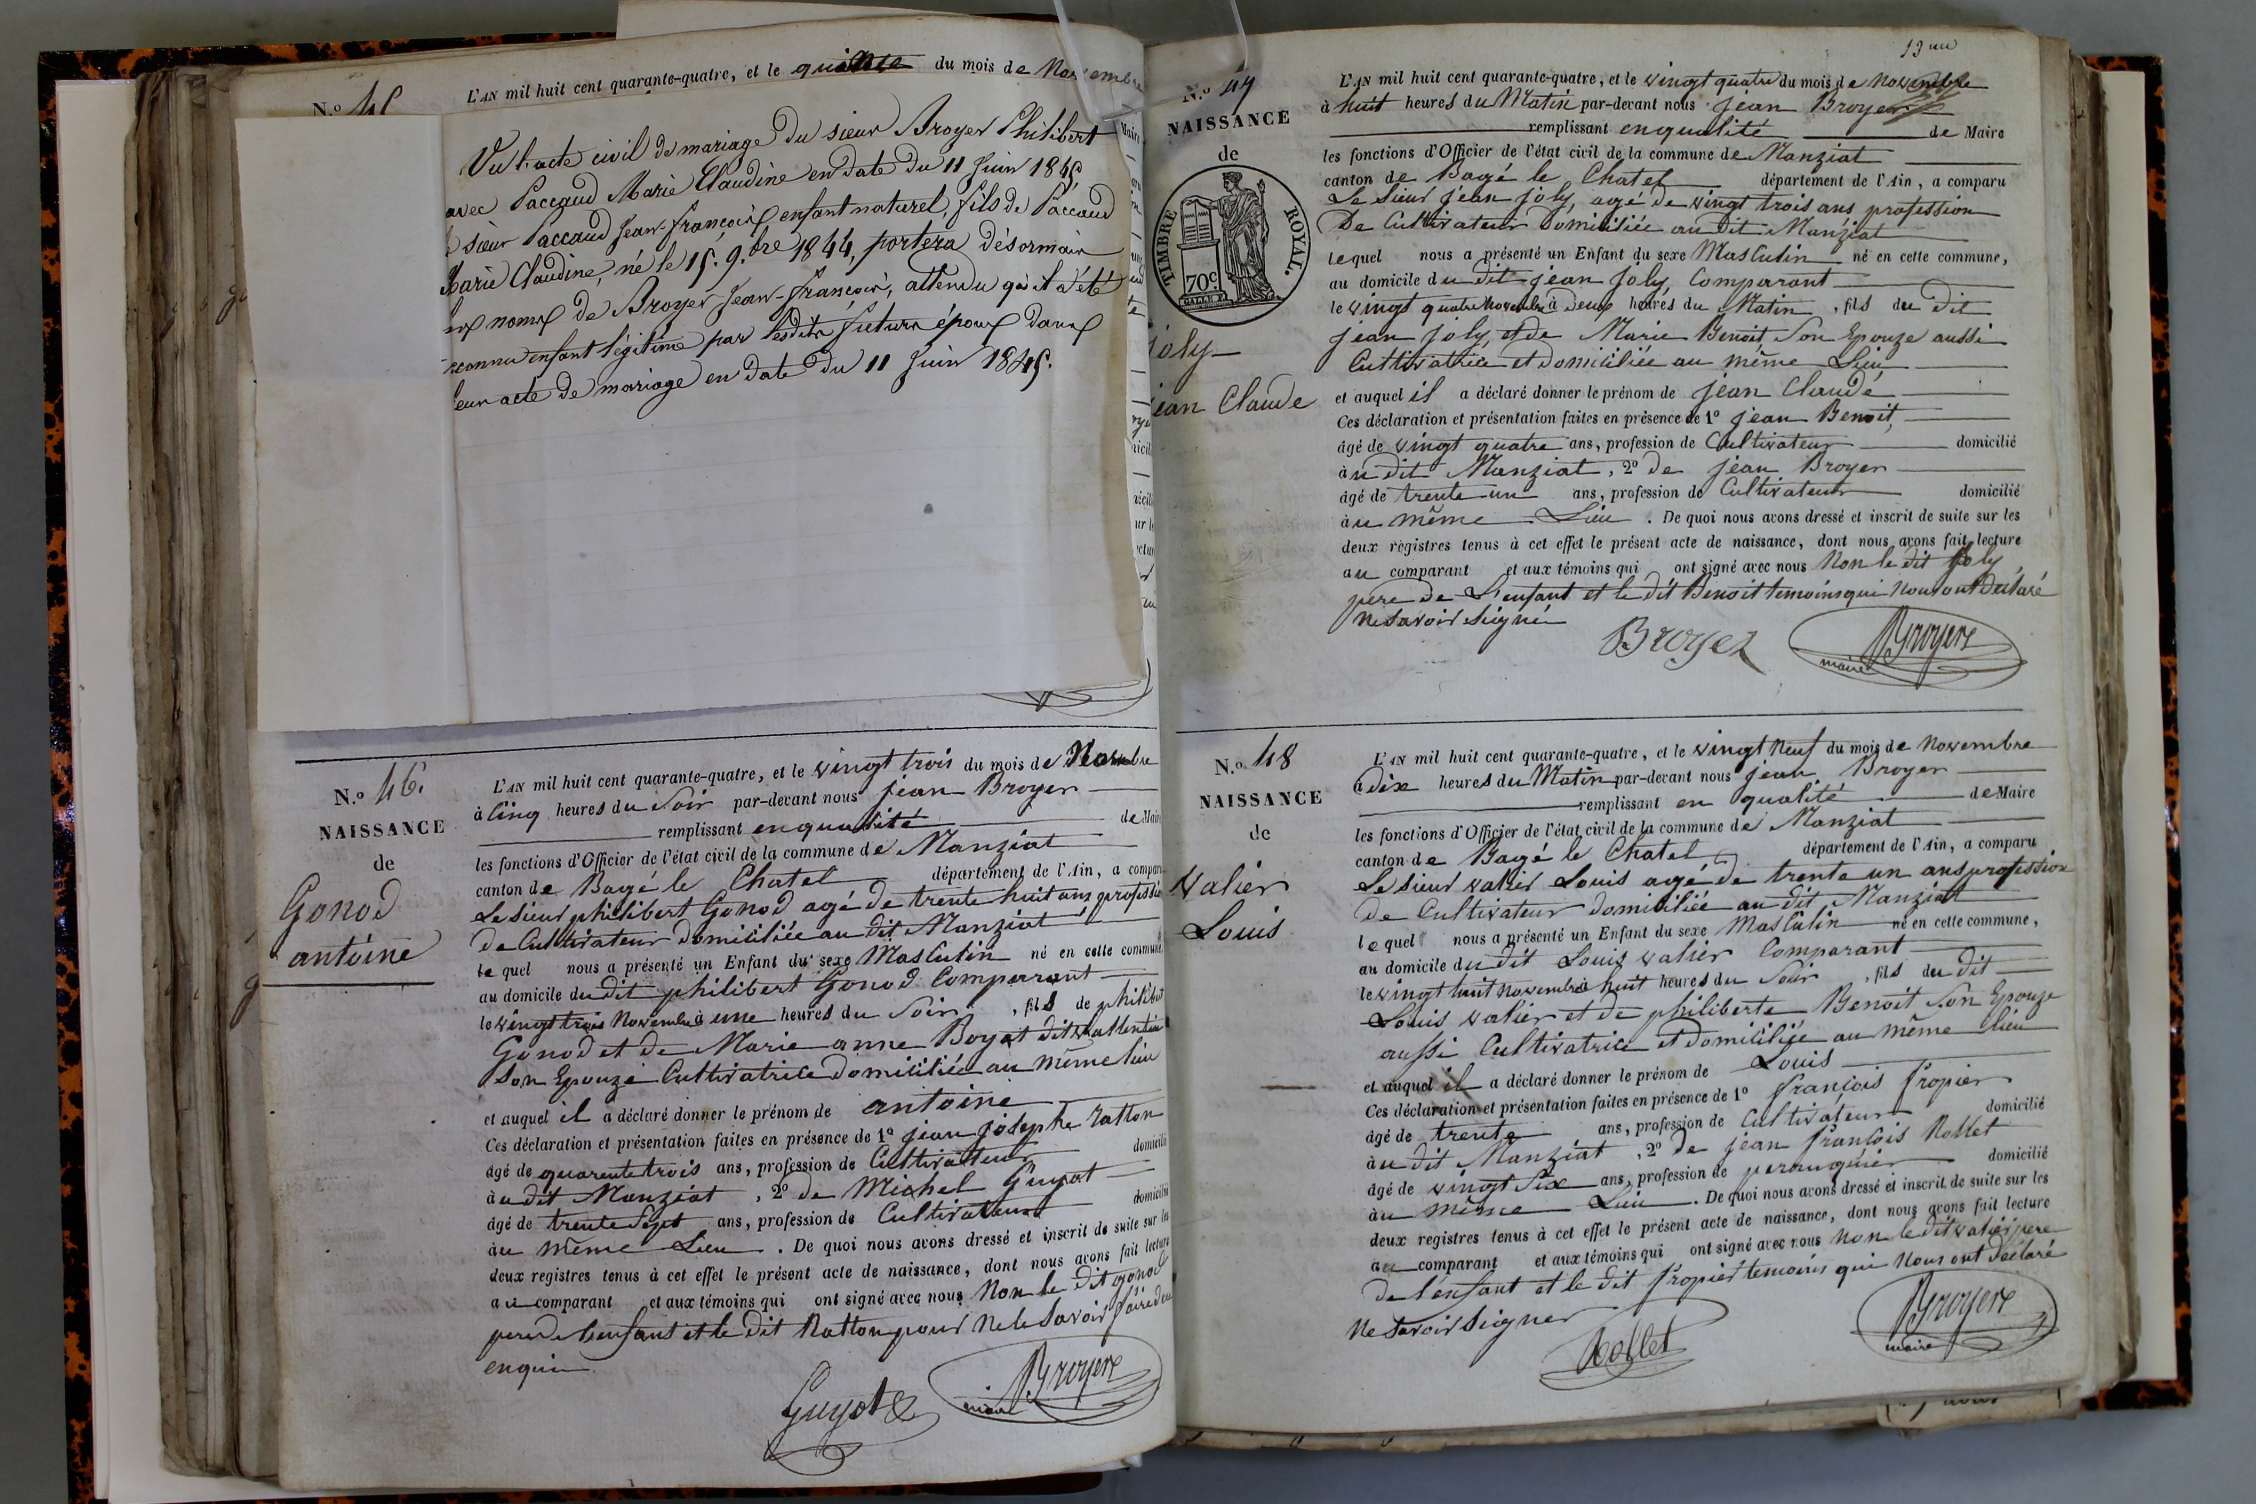 N.º 45
L'AN mil huit cent quarante-quatre, et le quinze du mois de Novembre
Vu l'acte civil de mariage du sieur Broyer Philibert
avec Paccaud Marie Claudine en date du 11 Juin 1845,
sieur Paccaud Jean-françois enfant naturel, fils de Paccaud
Marie Claudine, né le 15. 9.bre 1844, portera désormais
noms de Broyer Jean-françois, attendu qu'il a été
reconnu enfant légitime par lesdits future époux dans
leur acte de mariage en date du 11 Juin 1845.
N.º 46.
NAISSANCE
de
Gonod
antoine
L'AN mil huit cent quarante-quatre, et le vingt trois du mois de Novembre
à Cinq heures du Soir par-devant nous jean Broyer
remplissant en qualité de Maire
les fonctions d'Officier de l'état civil de la commune de Manziat
canton de Bagé le Chatel département de l'Ain, a comparu
Le sieur philibert Gonod agé de trente huit ans profession
De Cultivateur domiciliée au dit Manziat
le quel nous a présenté un Enfant du sexe Masculin né en cette commune,
au domicile du dit philibert Gonod Comparrant
le vingt trois Novembre à une heures du Soir, fils de philibert
Gonod et de Marie anne Boyat dit vallentin
Son Epouze Cultivatrice domiciliée au même lieu
et auquel il a déclaré donner le prénom de antoine
Ces déclaration et présentation faites en présence de 1º jean josephe ratton
âgé de quarente trois ans, profession de Cultivateur domicilié
à u dit Manziat, 2º de Michel Guyot
âgé de trente Sept ans, profession de Cultivateur domicilié
àu même Lieu. De quoi nous avons dressé et inscrit de suite sur les
deux registres tenus à cet effet le présent acte de naissance, dont nous avons fait lecture
au comparant et aux témoins qui ont signé avec nous Non le dit gonod
pere de l'enfant et le dit Ratton pour Ne le Savoir faire de
enquis
Guyot
Broyer
maire
13
N.º 47
NAISSANCE
de
TIMBRE ROYAL.
70c
joly
jean Claude
L'AN mil huit cent quarante-quatre, et le vingt quatre du mois de Novembre
à huit heures du Matin par-devant nous jean Broyer
remplissant en qualité de Maire
les fonctions d'Officier de l'état civil de la commune de Manziat
canton de Bagé le Chatel département de l'Ain, a comparu
Le Sieur jean joly, agé de vingt trois ans profession
De Cultivateur Domiciliée au Dit Manziat
lequel nous a présenté un Enfant du sexe Masculin né en cette commune,
au domicile du dit jean joly, Comparrant
le vingt quatre Novembre à Deux heures du Matin, fils du Dit
jean joly, et de Marie Benoit Son Epouze aussi
Cultivatrice et domiciliée au même Lieu
et auquel il a déclaré donner le prénom de jean Claude
Ces déclaration et présentation faites en présence de 1º jean Benoit,
âgé de vingt quatre ans, profession de Cultivateur domicilié
àu dit Manziat, 2º de jean Broyer
âgé de trente un ans, profession de Cultivateur domicilié
àu même Lieu. De quoi nous avons dressé et inscrit de suite sur les
deux registres tenus à cet effet le présent acte de naissance, dont nous avons fait lecture
au comparant et aux témoins qui ont signé avec nous Non le dit joly
père de L'enfant et le dit Benoit temoins qui Nous ont Déclaré
Ne savoir Seigner
Broyer
Broyer
maire
N.º 48
NAISSANCE
de
Valier
Louis
L'AN mil huit cent quarante-quatre, et le vingt Neuf du mois de Novembre
à dix heures du Matin par-devant nous jean Broyer
remplissant en qualité de Maire
les fonctions d'Officier de l'état civil de la commune de Manziat
canton de Bagé le Chatel département de l'Ain, a comparu
Le sieur valier Louis agé de trente un ans profession
De Cultivateur domiciliée au dit Manziat
lequel nous a présenté un Enfant du sexe Masculin né en cette commune,
au domicile du dit Louis valier Comparant
le vingt huit Novembre à huit heures du Soir, fils du dit
Louis valier et de philiberte Benoit Son Epouze
aussi Cultivatrice et domiciliée au même lieu
et auquel il a déclaré donner le prénom de Louis
Ces déclaration et présentation faites en présence de 1º françois fropier
âgé de trente ans, profession de Cultivateur domicilié
àu dit Manziat, 2º de jean françois Rollet
âgé de vingt Six ans, profession de perruquier domicilié
àu même Lieu. De quoi nous avons dressé et inscrit de suite sur les
deux registres tenus à cet effet le présent acte de naissance, dont nous avons fait lecture
au comparant et aux témoins qui ont signé avec nous Non le dit valier pere
De l'enfant et le dit fropier temoins qui Nous ont déclaré
Ne savoir signer
Rollet
Broyer
maire